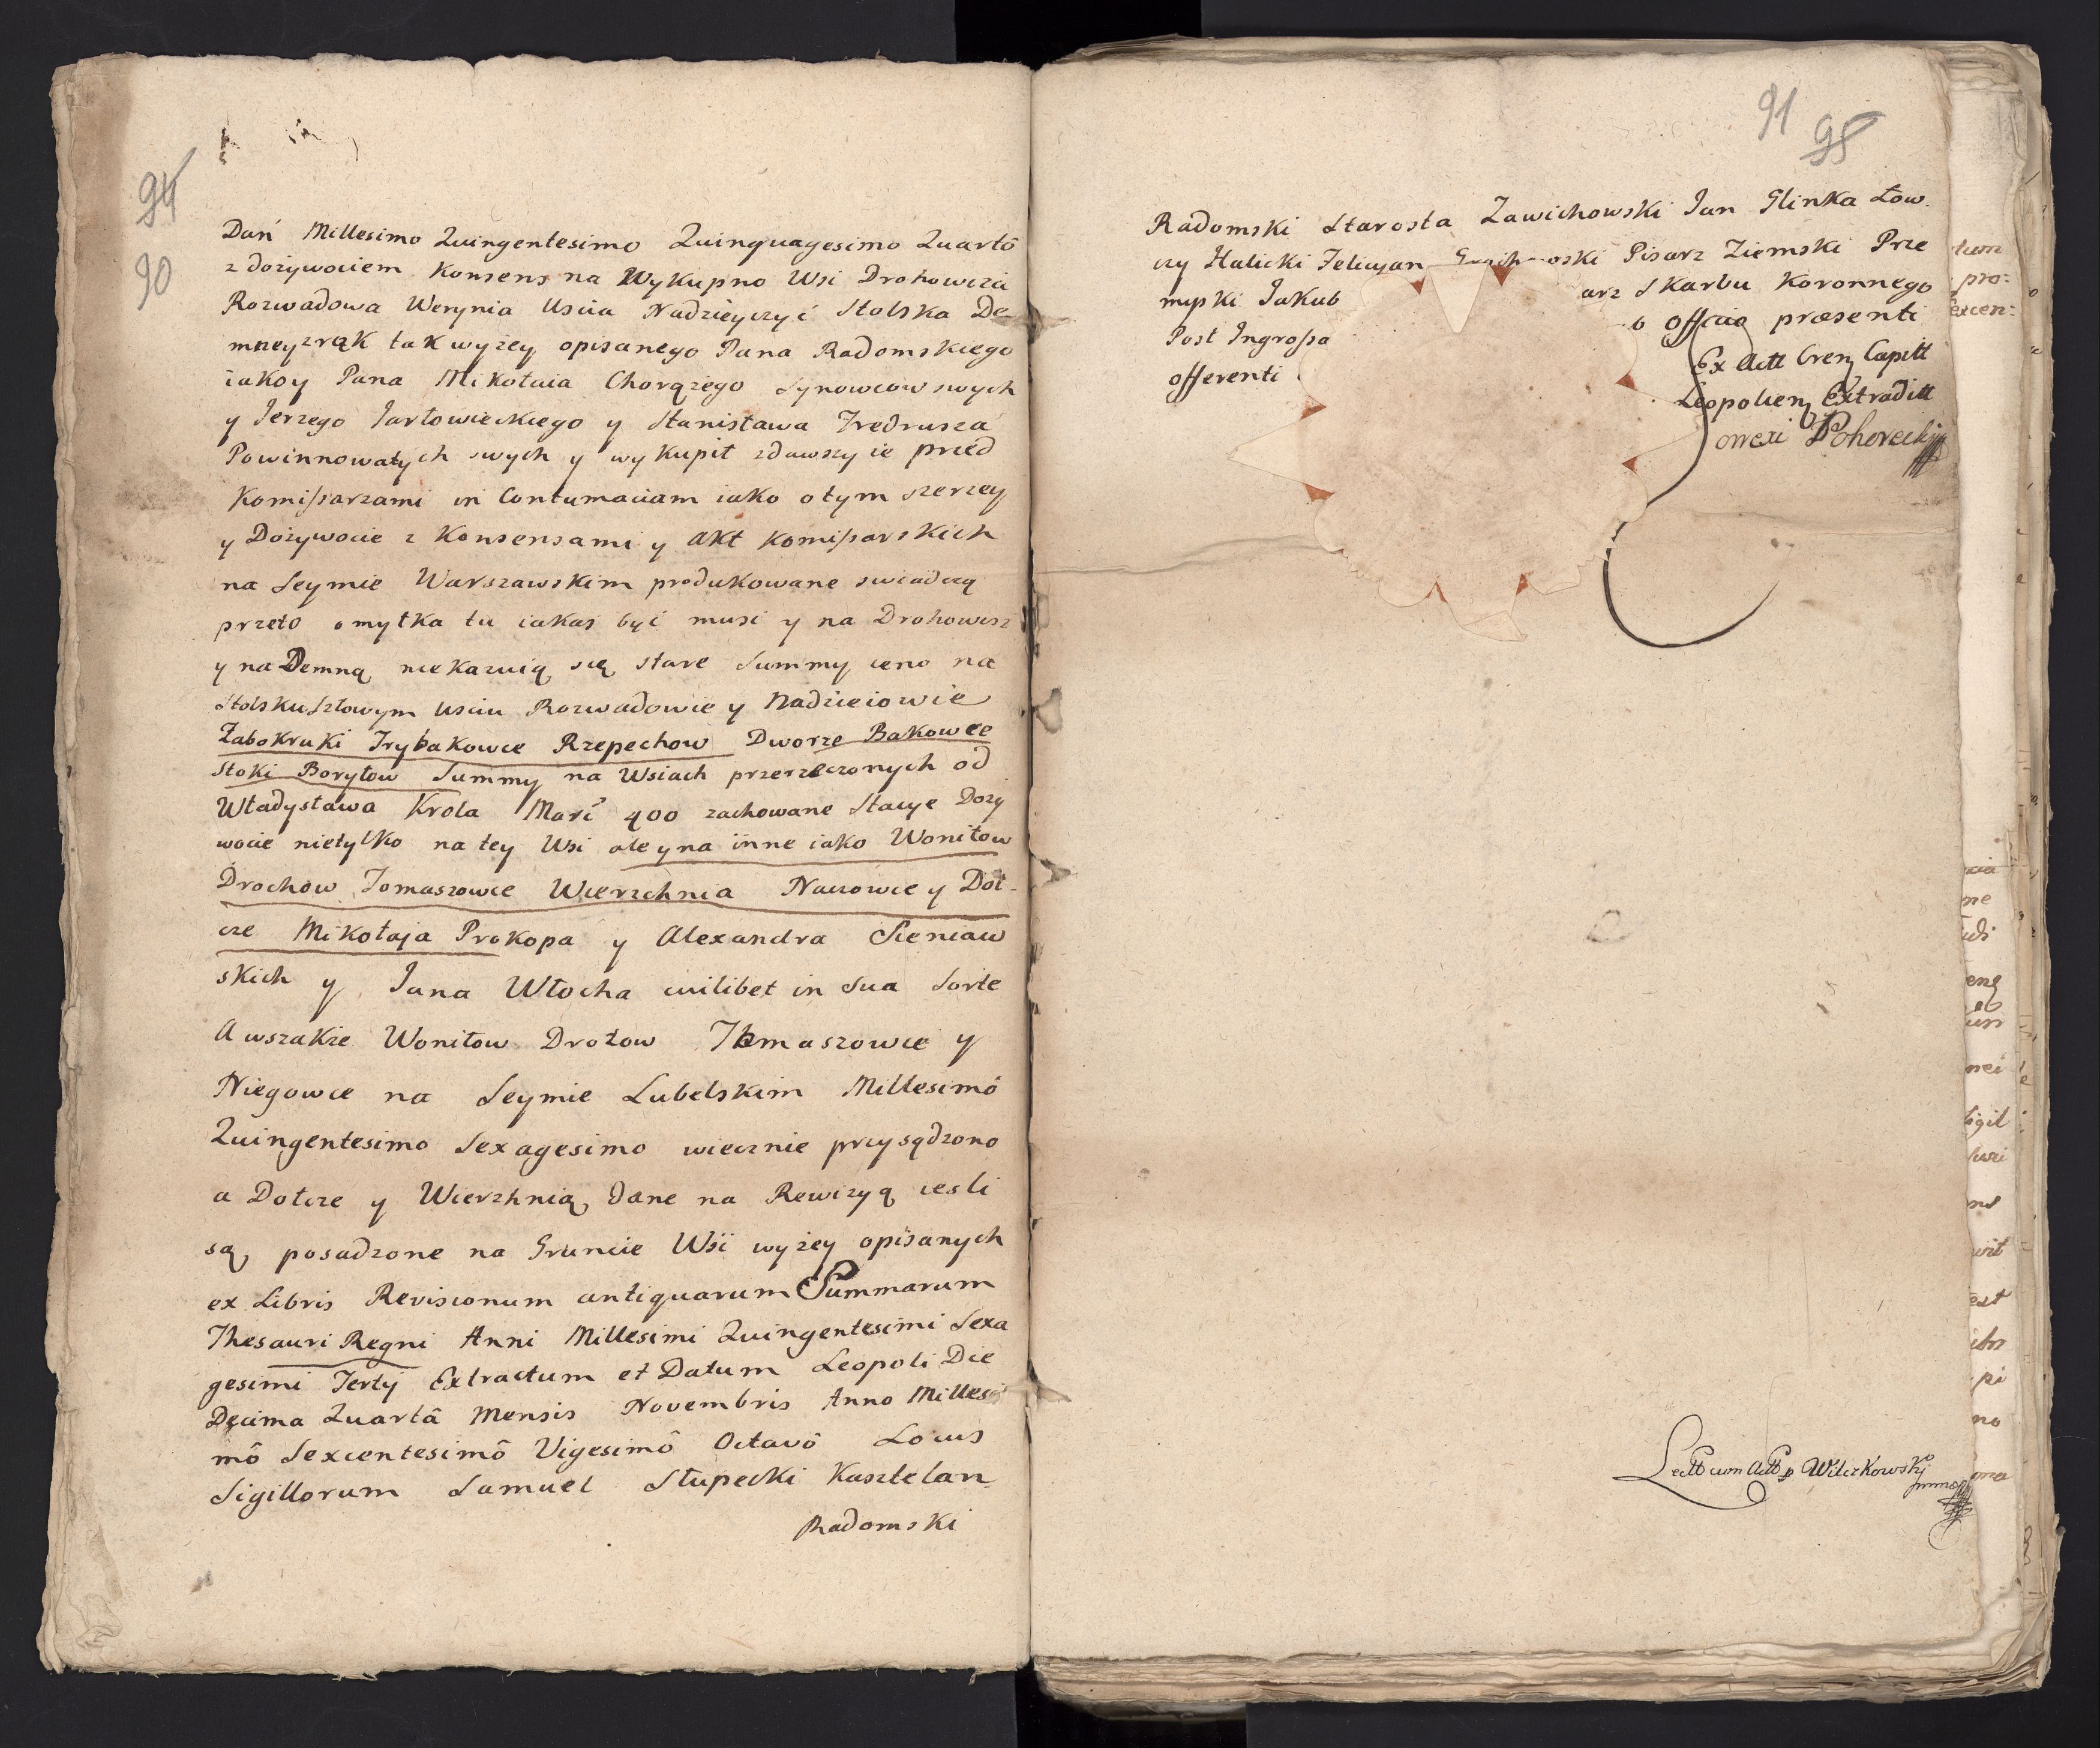 94
90
Dań Millesimo Quingentesimo Quinquagesimo Quartô
z dożywociem Konsens na Wykupno Wsi Drohowiza
Rozwadowa Werynia Uscia Nadzieyczyć Stolska De
mney z rąk tak wyżey opisanego Pana Radomskiego
iako y Pana Mikołaia Chorązego Synowcow swych
y Jerzego Jarłowieckiego y Stanisława Fredrusza
Powinnowatych swych y wykupił zdawszy ie przed
Komissarzami in Contumaciam iako o tym szerzey
y Dożywocie z Konsensami y akt Komissarskich
na Seymie Warszawskim produkowane swiadczą
przeto omyłka tu iakas być musi y na Drohowisz
y na Demną niekazuią się stare Summy ieno na
Stolsku Szłowym usciu Rozwadowie y Nadzieiowie
Żabokruki Trybakowce Rzepechow Dworze Bakowce
Stoki Boryłow Summy na Wsiach przerzeczonych od
Władysława Krola Març 400 zachowane Stacye Doży
wocie nietylko na tey Wsi ale y na inne iako Woniłow
Drochow Tomaszowce Wierzchnia Naczowce y Doł-
cze Mikołaja Prokopa y Alexandra Sieniaw
skich y Jana Włocha cuilibet in Sua Sorte
A wszakże Woniłow Drozow Thomaszowce y
Niegowce na Seymie Lubelskim Millesimô
Quingentesimo Sexagesimo wiecznie przysądzono
a Dołcze y Wierzhnią dane na Rewizyą iesli
są posadzone na Gruncie Wsi wyżey opisanych
ex Libris Revisionum antiquarum Summarum
Thesauri Regni Anni Millesimi Quingentesimi Sexa
gesimi Tertij Extractum et Datum Leopoli Die
Decima Quartâ Mensis Novembris Anno Millesi
mô Sexcentesimô Vigesimô Octavô Locus
Sigillorum Samuel Słupecki Kasztelan
Radomski
91
95
Radomski Starosta Zawichowski Jan Glinka Łow
czy Halicki Felicyan Pisarz Ziemski Prze
myski Jakub arz Skarbu Koronnego
Post Ingrossa o Officio præsenti
offerenti Ex Actt Cren Capitt
Leopolien Extraditt
orrexi Pohorecki
Lectt cum Actt p Wilczkowski